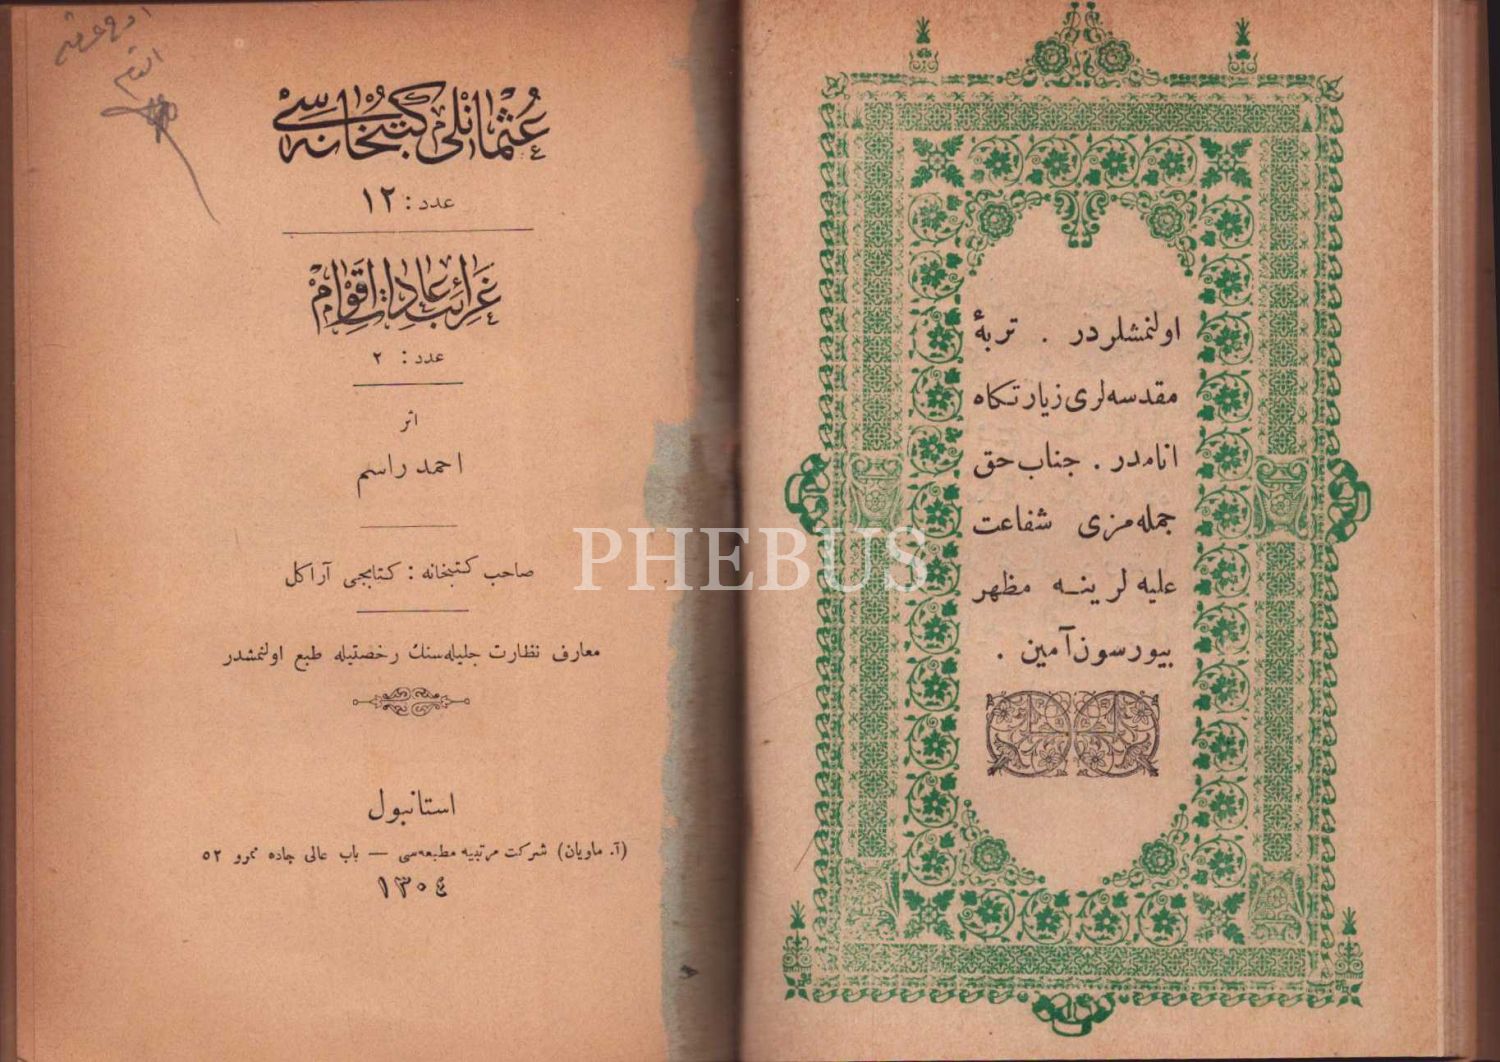 عُثمانلی كتبخانه‌سی
عدد : ١٢
غرائب عادات اقوام
عدد : ٢
اثر
احمد راسم
صاحب كتبخانه : كتابجی آراكل
معارف نظارت جلیله‌سنك رخصتیله طبع اولنمشدر
استانبول
(آ. ماویان) شركت مرتبیه مطبعه‌سی — باب عالی جاده نمرو ٥٢
١٣٠٤
اولنمشلردر . تربهٔ
مقدسه‌لری زیارتكاه
انامدر . جناب حق
جمله‌مزی شفاعت
علیه‌لرینه مظهر
بیورسون آمین .
PHEBUS